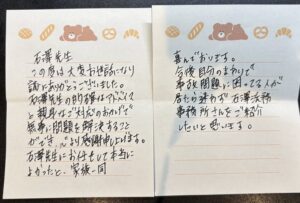 石澤先生
この度は大変お世話になり
誠にありがとうございました。
石澤先生の的確なアドバイス
と親身なご対応のおかげで
無事に問題を解決すること
ができ、心より感謝申し上げます。
石澤先生にお任せして本当に
よかったと、家族一同
喜んでおります。
今後自分のまわりで
事故問題に困ってる人が
居たら迷わず石澤法務
事務所さんをご紹介
したいと思います。